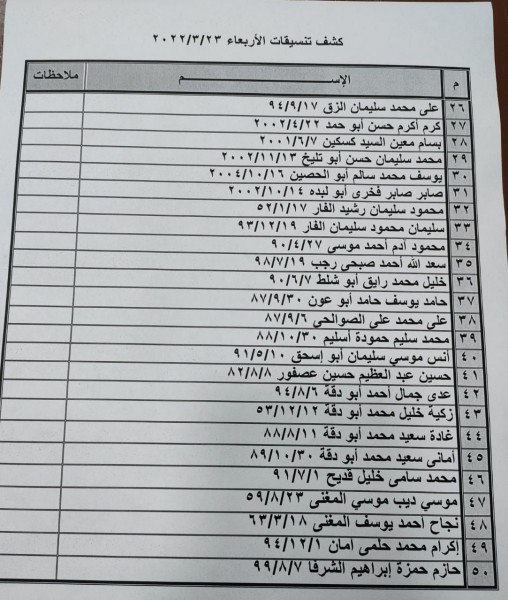 كشف تنسيقات الأربعاء ٢٠٢٢/٣/٢٣
م الإســـم ملاحظات
٢٦ على محمد سليمان الزق ٩٤/٩/١٧
٢٧ كرم أكرم حسن أبو حمد ٢٠٠٢/٤/٢٢
٢٨ بسام معين السيد كسكين ٢٠٠١/٦/٧
٢٩ محمد سليمان حسن أبو تليخ ٢٠٠٢/١١/١٣
٣٠ يوسف محمد سالم أبو الحصين ٢٠٠٤/١٠/١٦
٣١ صابر صابر فخرى أبو لبده ٢٠٠٢/١٠/١٤
٣٢ محمود سليمان رشيد الفار ٥٢/١/١٧
٣٣ سليمان محمود سليمان الفار ٩٣/١٢/١٩
٣٤ محمود أدم أحمد موسى ٩٠/٤/٢٧
٣٥ سعد الله أحمد صبحي رجب ٩٨/٧/١٩
٣٦ خليل محمد رايق أبو شلط ٩٠/٦/٧
٣٧ حامد يوسف حامد أبو عون ٨٧/٩/٣٠
٣٨ على محمد على الصوالحى ٨٧/٩/٦
٣٩ محمد سليم حمودة أسليم ٨٨/١٠/٣٠
٤٠ أنس موسي سليمان أبو إسحق ٩١/٥/١٠
٤١ حسين عبد العظيم حسين عصفور ٨٢/٨/٨
٤٢ عدى جمال أحمد أبو دقة ٩٤/٨/٦
٤٣ زكية خليل محمد أبو دقة ٥٣/١٢/١٢
٤٤ غادة سعيد محمد أبو دقة ٨٨/٨/١١
٤٥ أمانى سعيد محمد أبو دقة ٨٩/١٠/٣٠
٤٦ محمد سامى خليل قديح ٩١/٧/١
٤٧ موسي ديب موسي المغنى ٥٩/٨/٢٣
٤٨ نجاح احمد يوسف المغنى ٦٣/٣/١٨
٤٩ إكرام محمد حلمى امان ٩٤/١٢/١
٥٠ حازم حمزة إبراهيم الشرفا ٩٩/٨/٧